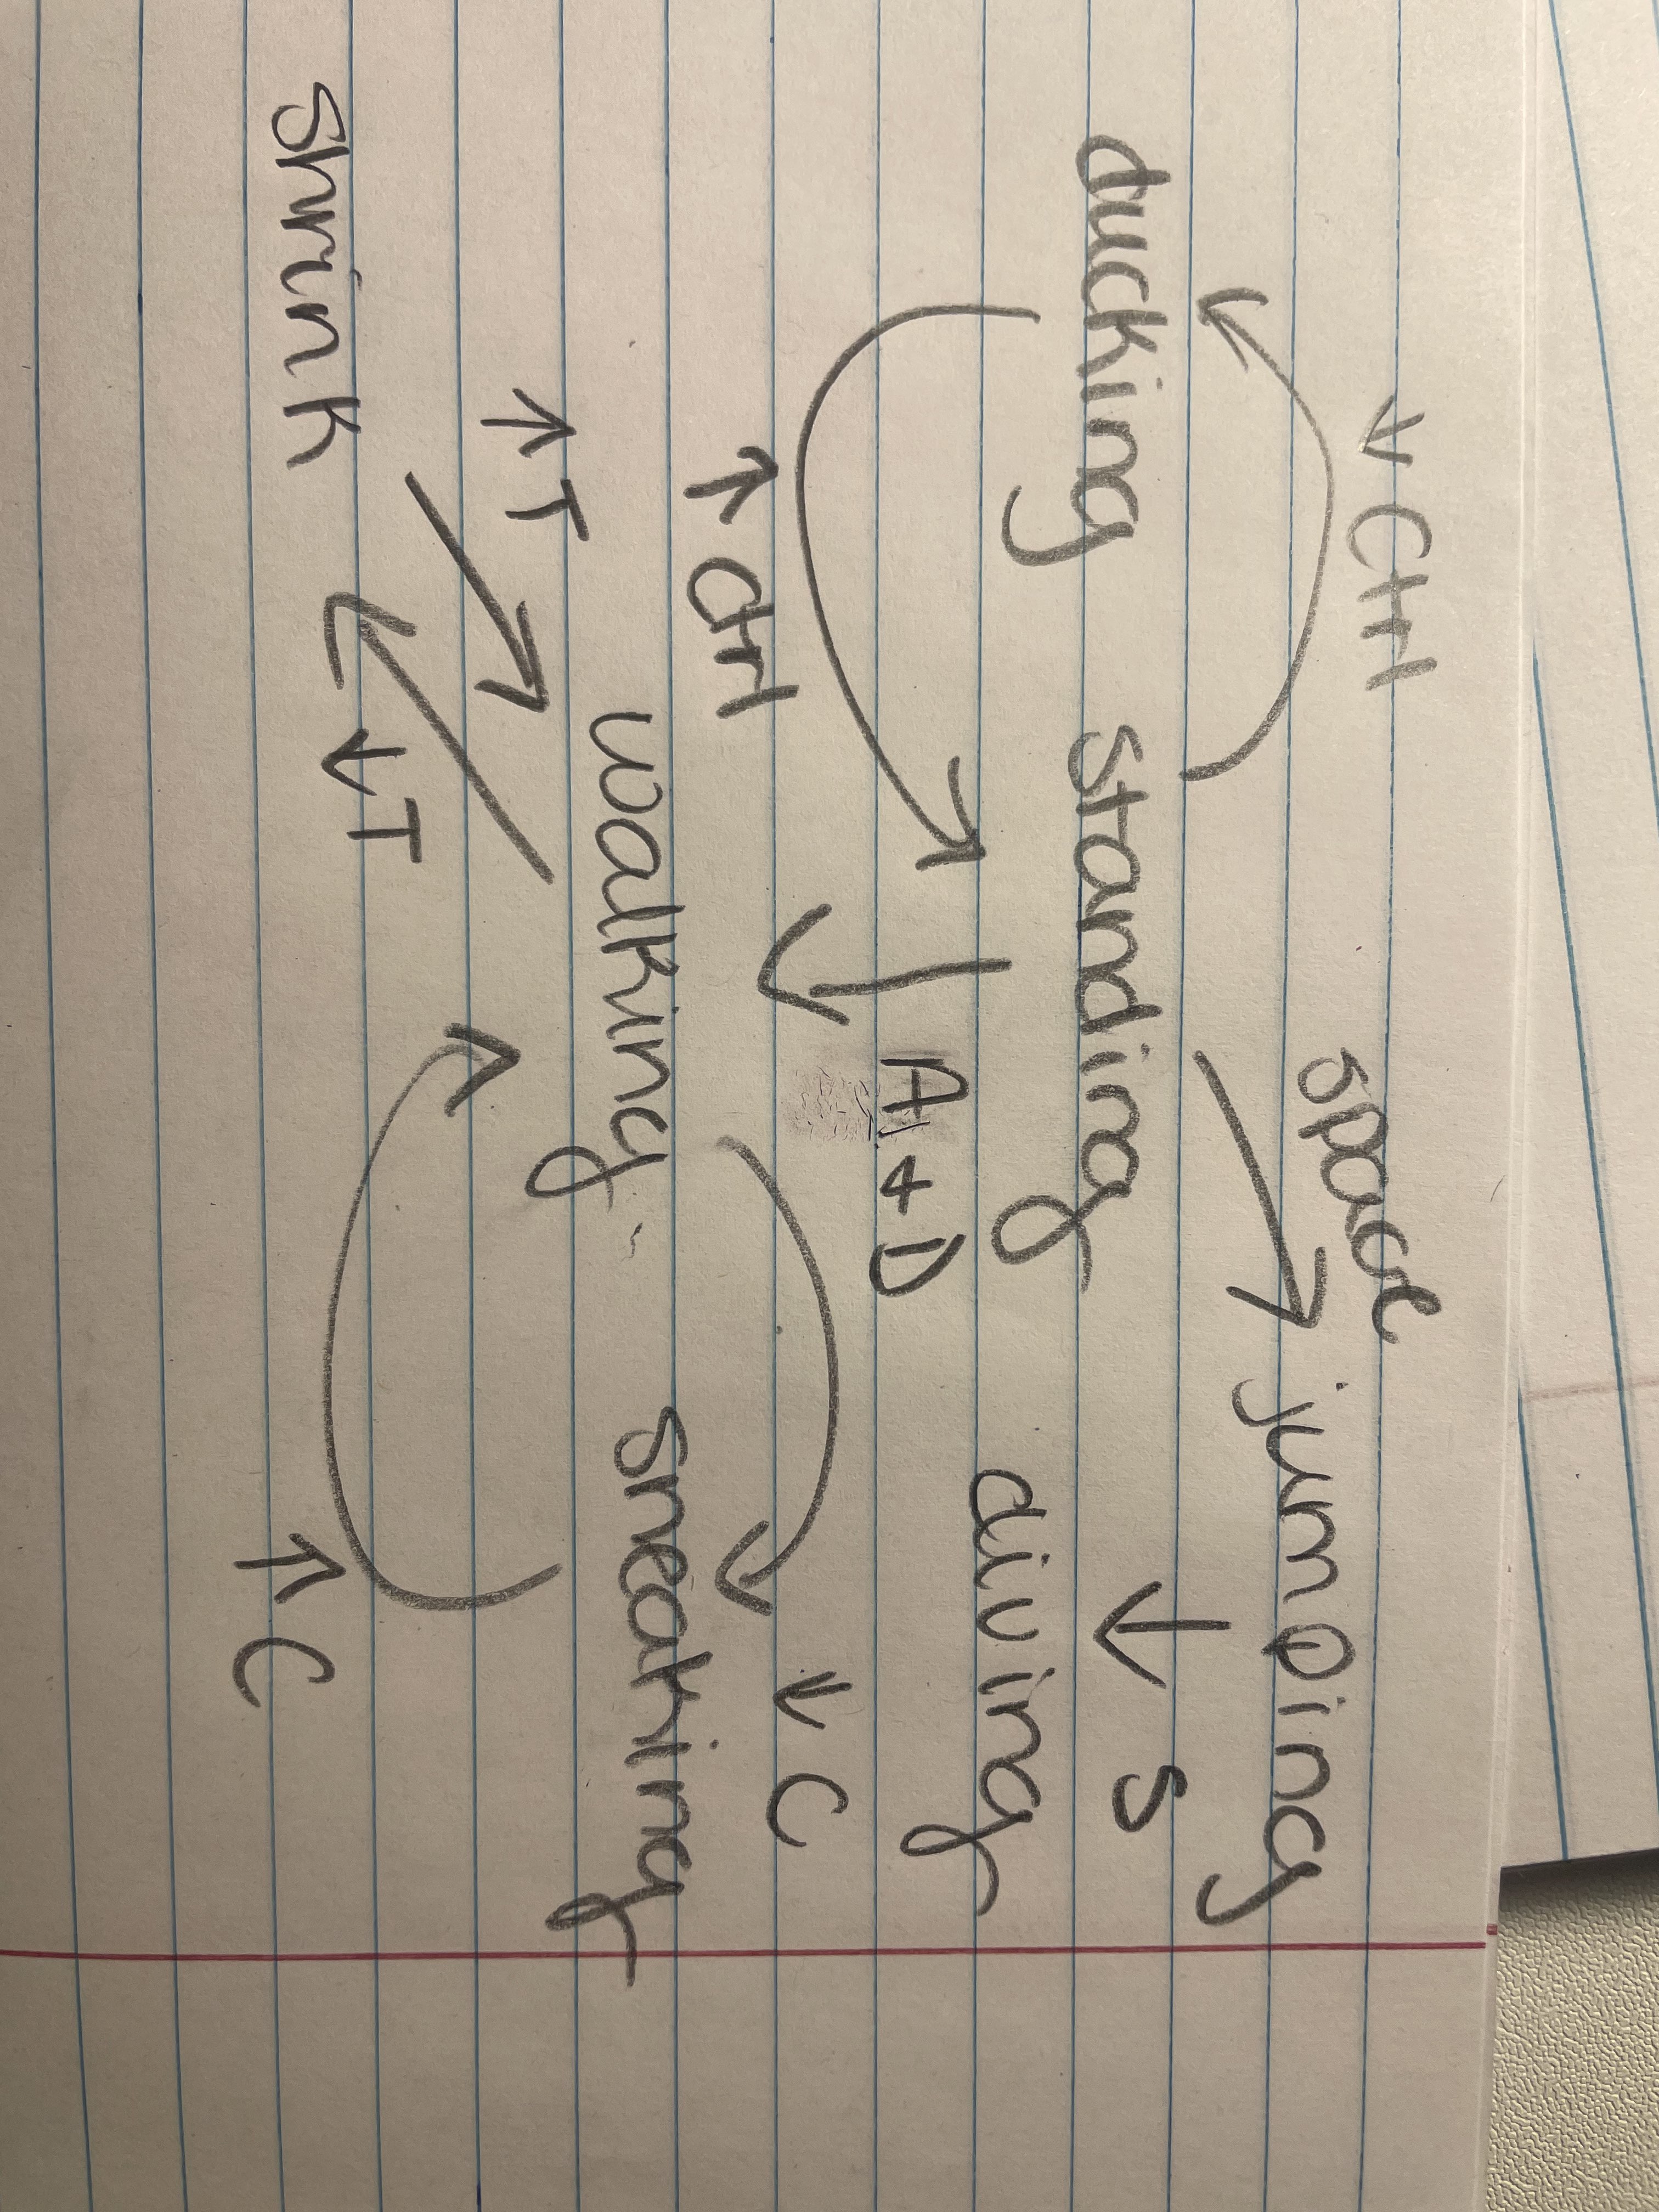 ↓ Ctrl
space
jumping
ducking standing
↓ S
diving
A + D
↑ Ctrl
↓ C
walking sneaking
↑ T
↓ T
shrink
↑ C